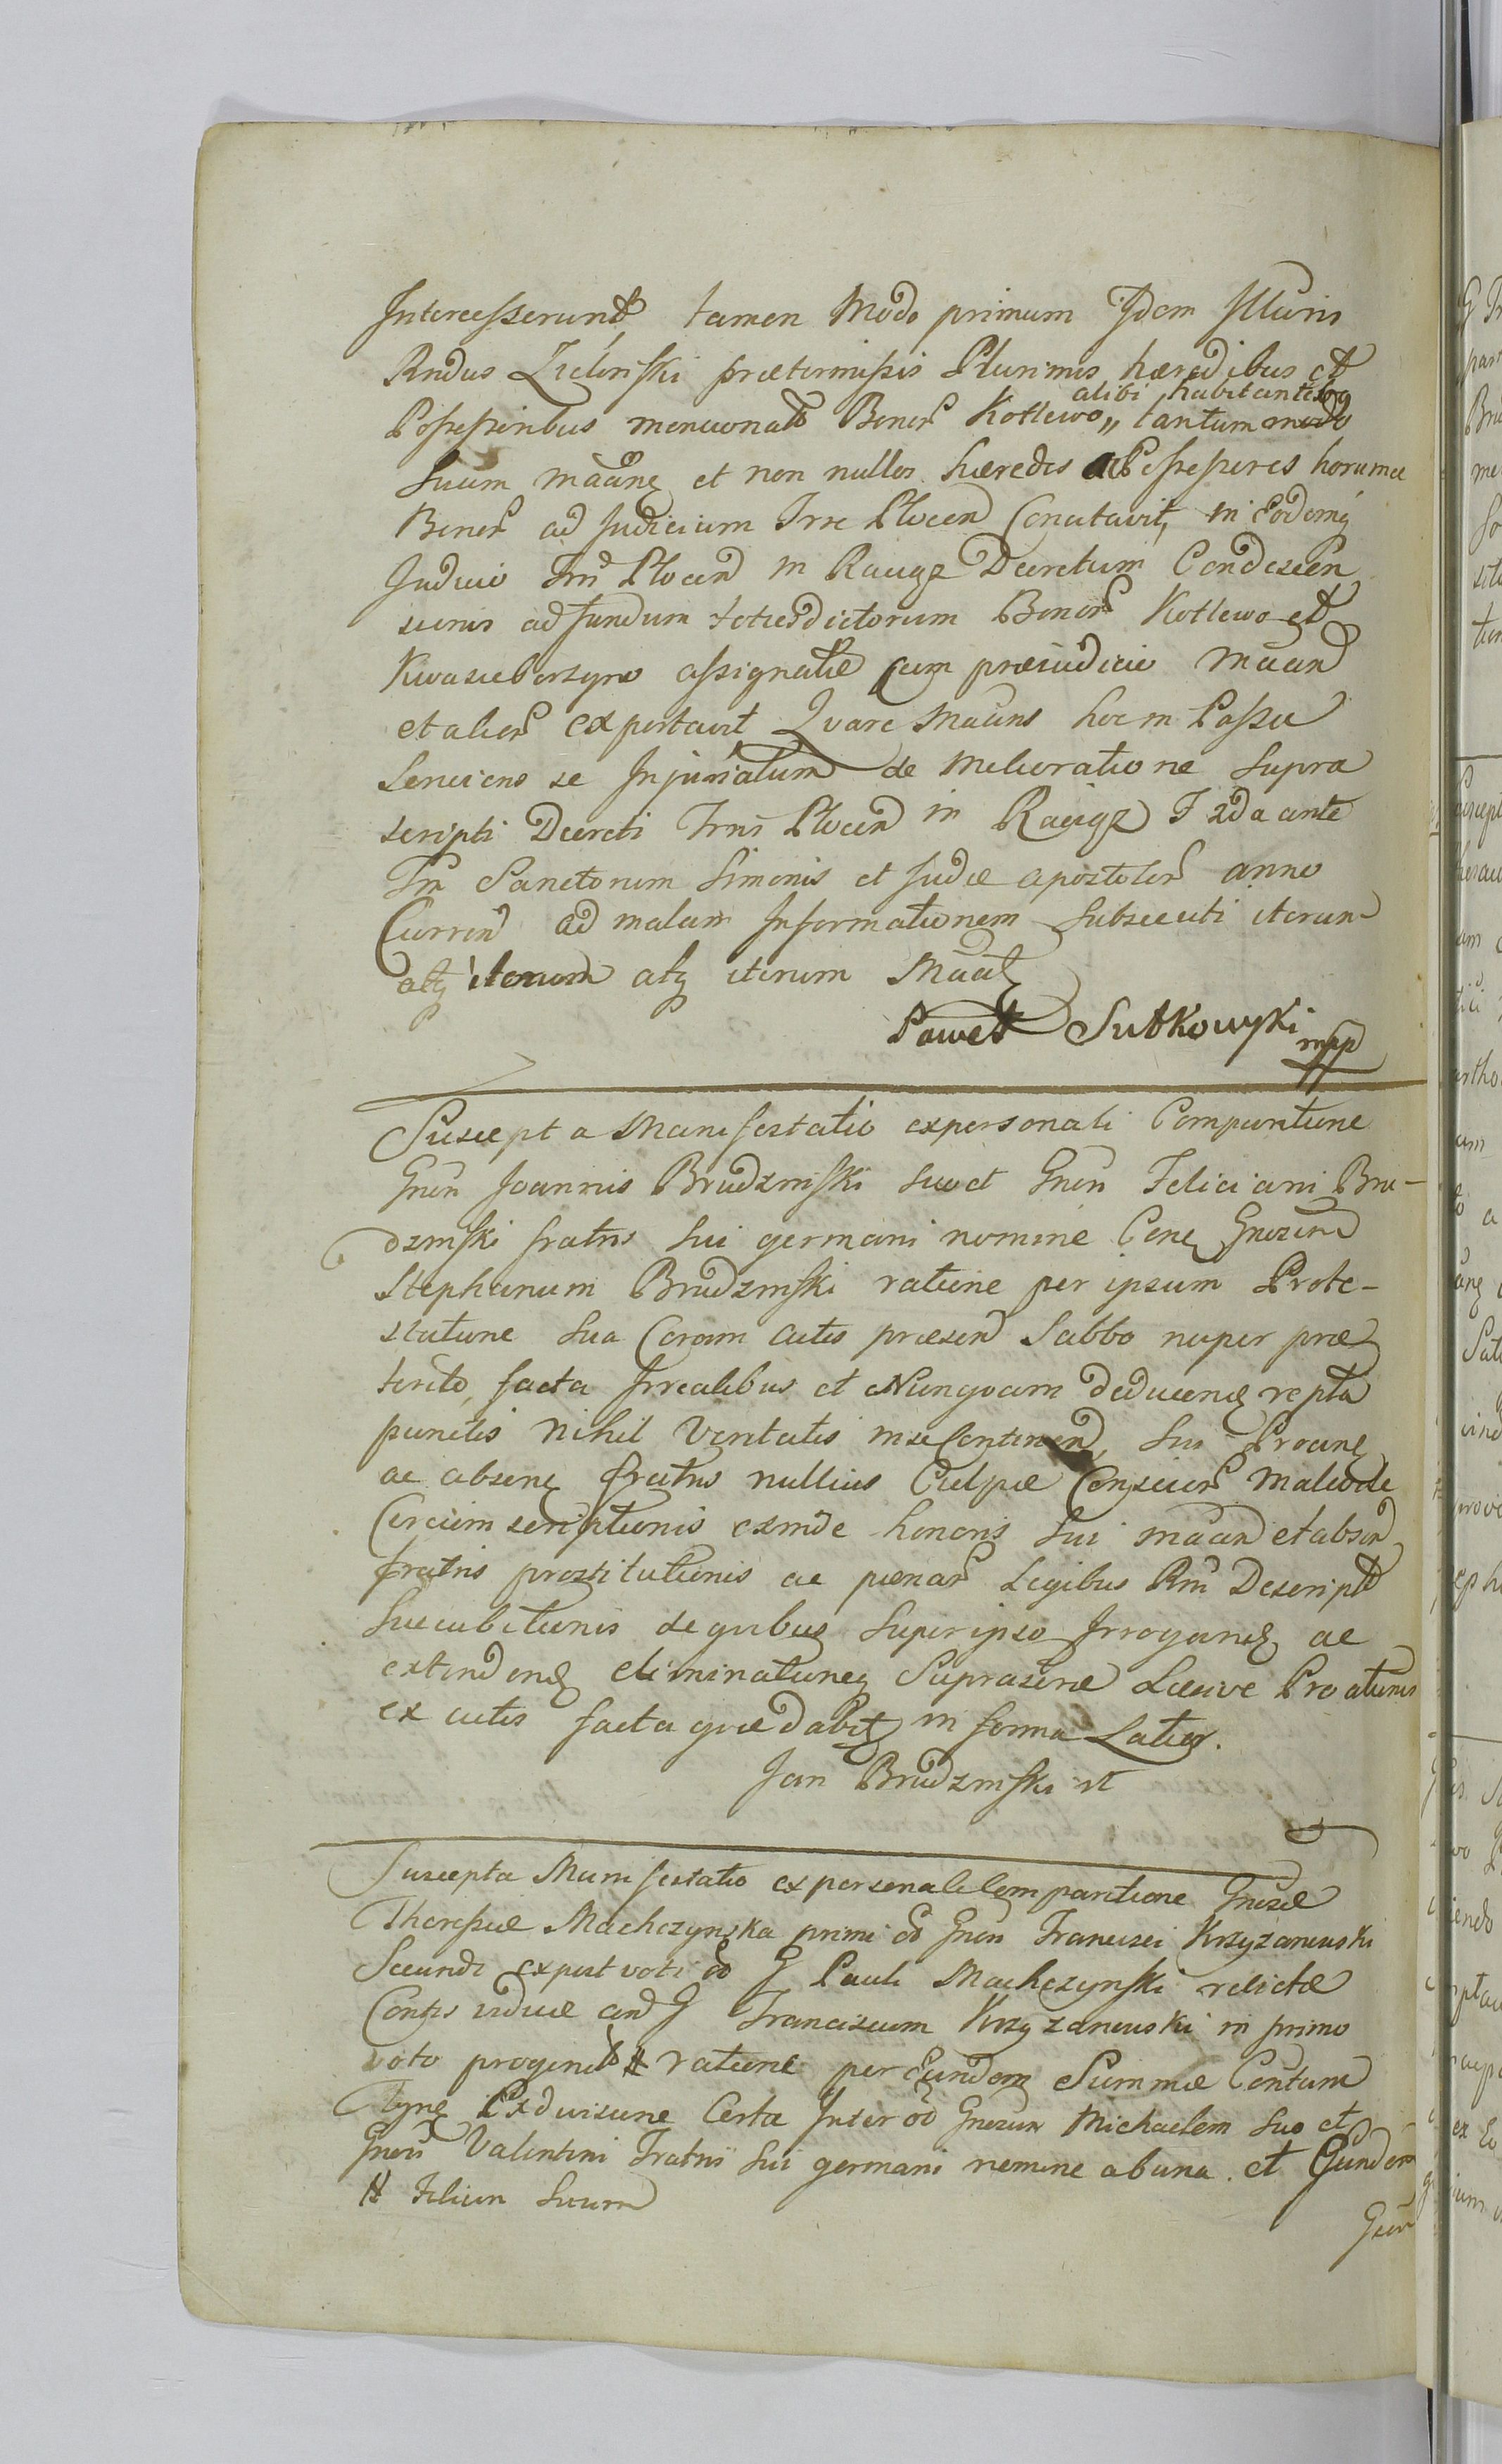 Intercesserunt tamen Modo primum Idem Illuris
Rndus Zielinski prætermissis Plurimis hæredibus et
alibi habitantibq
Possessoribus mencionato Bonor Kotlewo „ tantum modo
Suum maanq et non nullos hæredes ac Possessores horumce
Bonor ad Judicium Trre Plocen Concitavit, in Eodemq
Judicio Trri Plocen in Raciąz Decretum Condescen
sionis ad fundum totiesdictorum Bonor Kotlewo et
Kwasieborzyno assignatæ cum præiudicio maan
et alior exportavit Qvare Maans hoc in Passu
Senciens se Injuriatum de melioratione Supra
scripti Decreti Trris Plocen in Raciąz F 2da ante
Fm Sanctorum Simonis et Judæ apostolor anno
Curren ad malam Informationem Subsecuti iterum
atq iterum atq iterum Maat
Paweł Sutkowski mpp
Suscepta Manifestatio expersonali Comparitione
Gnen Joannis Brudzinski suo et Gnen Feliciani Bru-
dzinski fratris sui germani nomine Cone Gnozum
Stephanum Brudzinski ratione per ipsum Prote-
statione sua Coram actis præsen Sabbo nuper præ
terito facta Irrealibus et Nunqvam deducenq repta
punctis Nihil Veritatis in se Continen, sui Proanq
ac absenq fratris nullius Culpæ Conscior Maliode
Circumscriptionis exinde honoris sui maan et absen
fratris prostitutionis ac pænar Legibus Rni Descript
Succubitionis de qvibus Super ipso Irrogandq ac
extendendq eliminationeq Suprascræ Læsivæ Proationis
ex actis facta qvæ dabit in forma Latior.
Jan Brudzinski
Suscepta Manifestatio ex personali Comparitione Gnosæ
Theressiæ Machczynska primi od Gnen Francisci Krzyżanowski
Secundi expost voti od G Pauli Machczynski relictæ
Contis viduæ con G Franciscum Krzyżanowski in primo
voto progenit # ratione per Eundem Summæ Centum
Tynq Exdivisione Certa Inter od Gnosum Michaelem suo et
Gnen Valentini Fratris sui germani nomine ab una et Eundem
# Filium Suum
Gnen